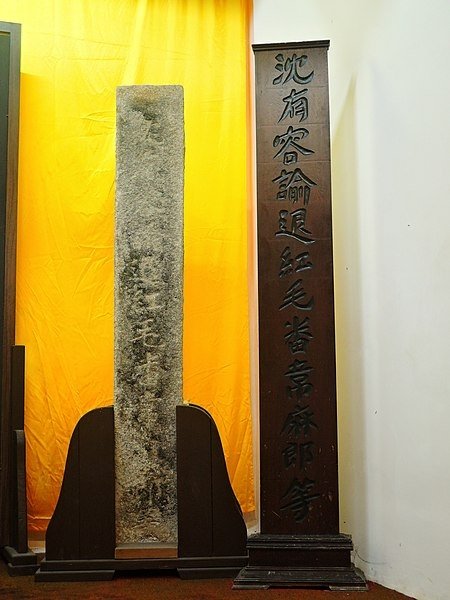 沈有容諭退紅毛番韋麻郎等
紅毛番